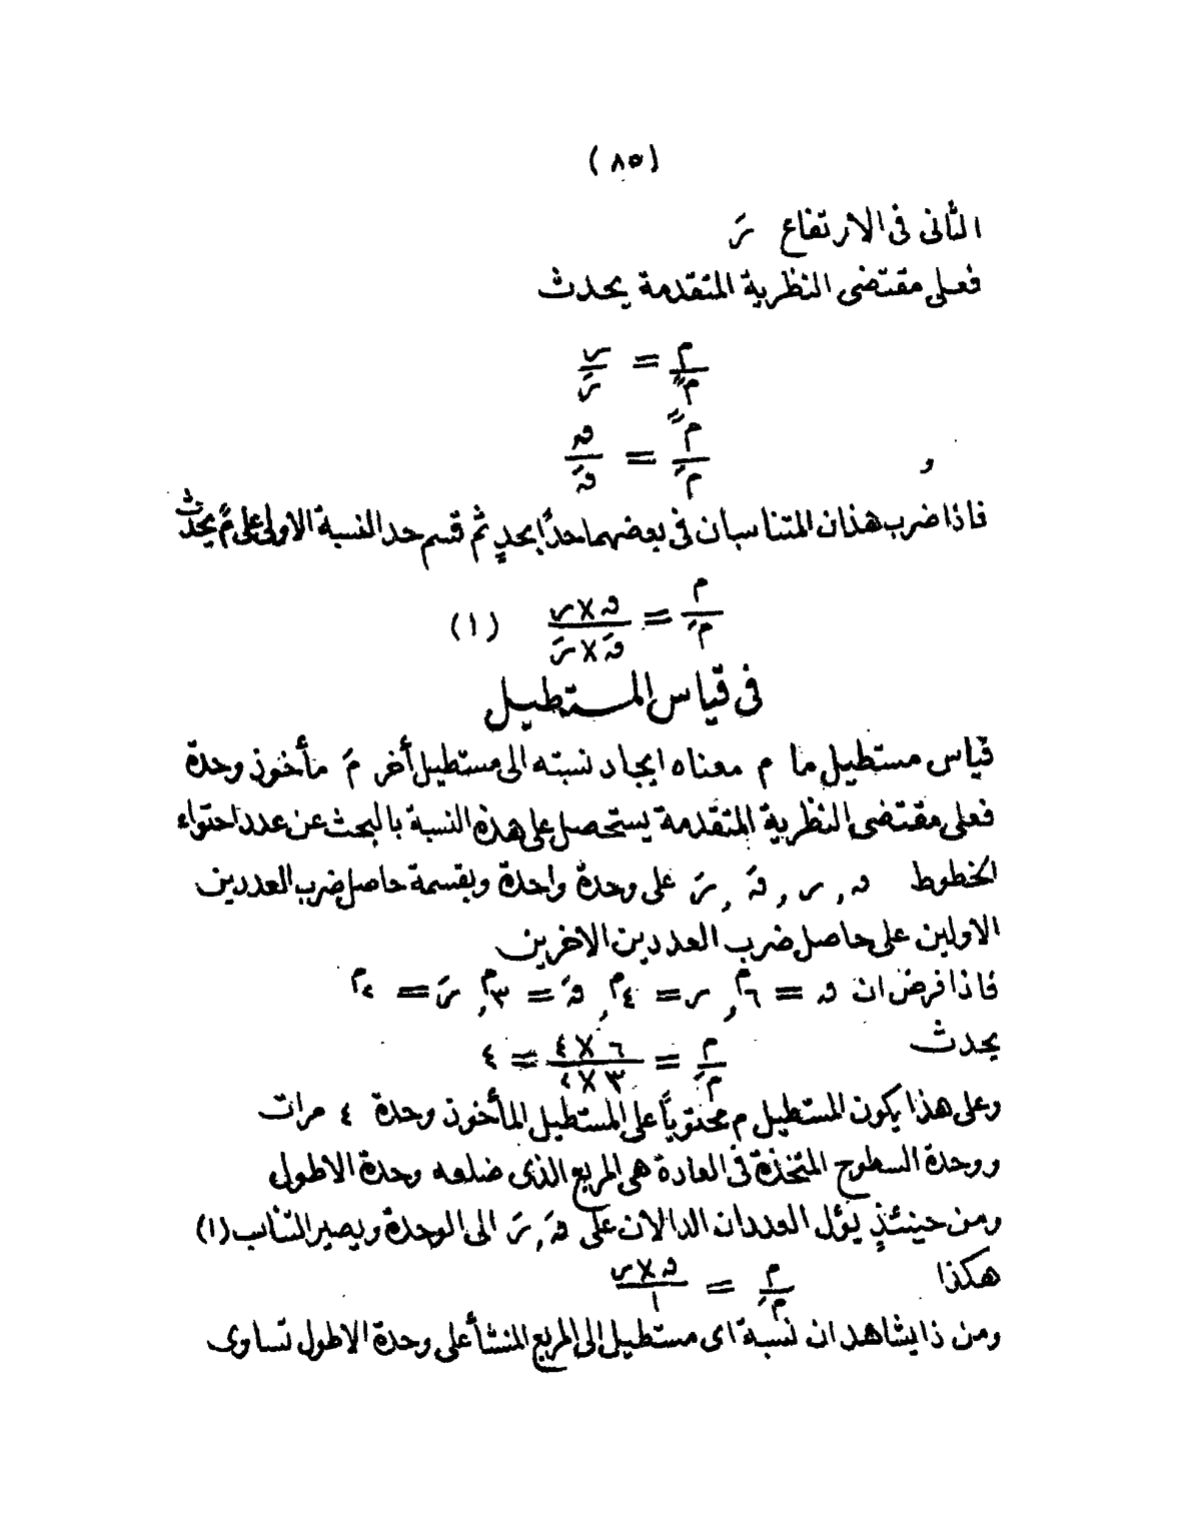 (٨٥)
الثانى فى الارتفاع رَ
فعلى مقتضى النظرية المتقدمة يحدث
م/مً = ر/رَ
و مً/مَ = ق/قَ
فاذا ضرب هذان المتناسبان فى بعضهما حدًا بحدٍ ثم قسم حد النسبة الاولى على مً يحدث
م/مَ = ق×ر/قَ×رَ (١)
فى قياس المستطيل
قياس مستطيل ما م معناه ايجاد نسبته الى مستطيل أخر مَ مأخوذ وحدة
فعلى مقتضى النظرية المتقدمة يستحصل على هذه النسبة بالبحث عن عدد احتواء
الخطوط ق , ر , قَ , رَ على وحدة واحدة وبقسمة حاصل ضرب العددين
الاولين على حاصل ضرب العددين الاخرين
فاذا فرض ان ق = ٦م , ر = ٤م , قَ = ٣م , رَ = ٢م
يحدث م/مَ = ٦×٤/٣×٢ = ٤
وعلى هذا يكون المستطيل م محتوياً على المستطيل المأخوذ وحدة ٤ مرات
ووحدة السطوح المتخذة فى العادة هى المربع الذى ضلعه وحدة الاطول
ومن حينئذٍ يؤل العددان الدالان على قَ , رَ الى الوحدة ويصير التناسب (١)
هكذا م/مَ = ق×ر/١
ومن ذا يشاهد ان نسبة اى مستطيل الى المربع المنشأ على وحدة الاطول تساوى